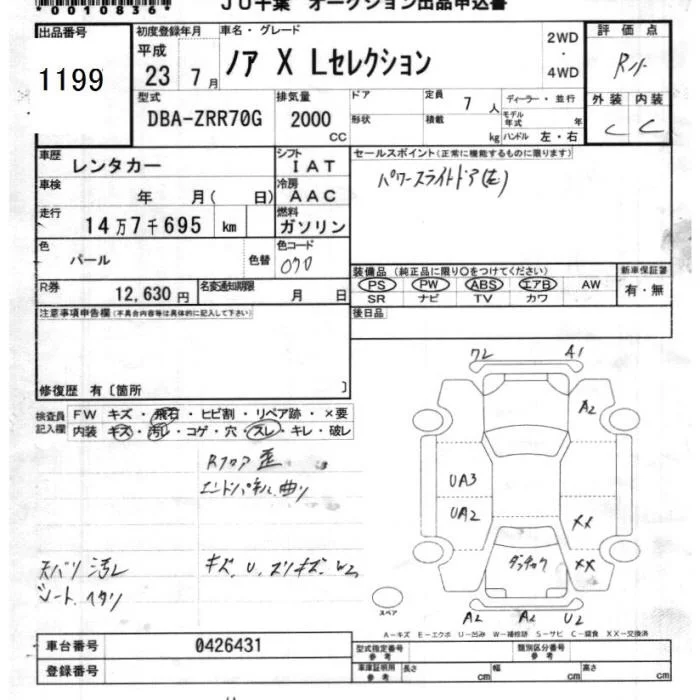 *00108361*
JU千葉 オークション出品申込書
出品番号
1199
初度登録年月
平成
23 年 7 月
車名・グレード
ノア X Lセレクション
2WD
・
4WD
評価点
R
外装 内装
C C
型式
DBA-ZRR70G
排気量
2000
CC
ドア
形状
定員 7 人
積載 kg
ディーラー・並行
モデル年式 年
ハンドル 左・右
車歴
レンタカー
シフト
IAT
車検
年 月( 日)
冷房
AAC
走行
14万7千695 km
燃料
ガソリン
色
パール
色替
色コード
070
R券
12,630 円
名変通知期限
月 日
セールスポイント(正常に機能するものに限ります)
パワースライドドア(左)
装備品(純正品に限り○をつけてください)
PS PW ABS エアB AW
SR ナビ TV カワ
新車保証書
有・無
後日品
注意事項申告欄(不具合内容等は具体的に記入して下さい)
修復歴 有〔箇所 〕
検査員記入欄
FW キズ・飛石・ヒビ割・リペア跡・×要
内装 キズ・汚レ・コゲ・穴・スレ・キレ・破レ
Rフロア 歪
エンドパネル 曲り
天バリ 汚レ
シート ヘタリ
キズ、U、スリキズ、W2
A1
A2
UA3
UA2
XX
XX
A2 A2 U2
スペア
A-キズ E-エクボ U-凹み W-補修跡 S-サビ C-腐食 XX-交換済
車台番号
0426431
登録番号
型式指定番号
参考
類別区分番号
参考
車庫証明用
参考
長さ cm
幅 cm
高さ cm